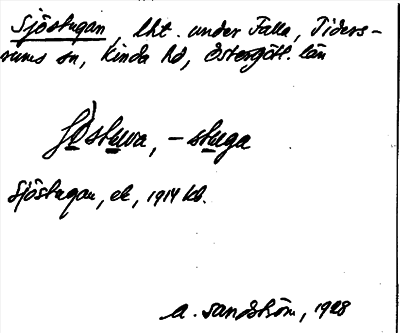 Sjöstugan, lht. under Falla, Tiders-
rums sn, Kinda hd, Östergötl. län
sjòstuva, -stuga
Sjöstugan, ek, 1914 kb.
A. Sandström, 1928